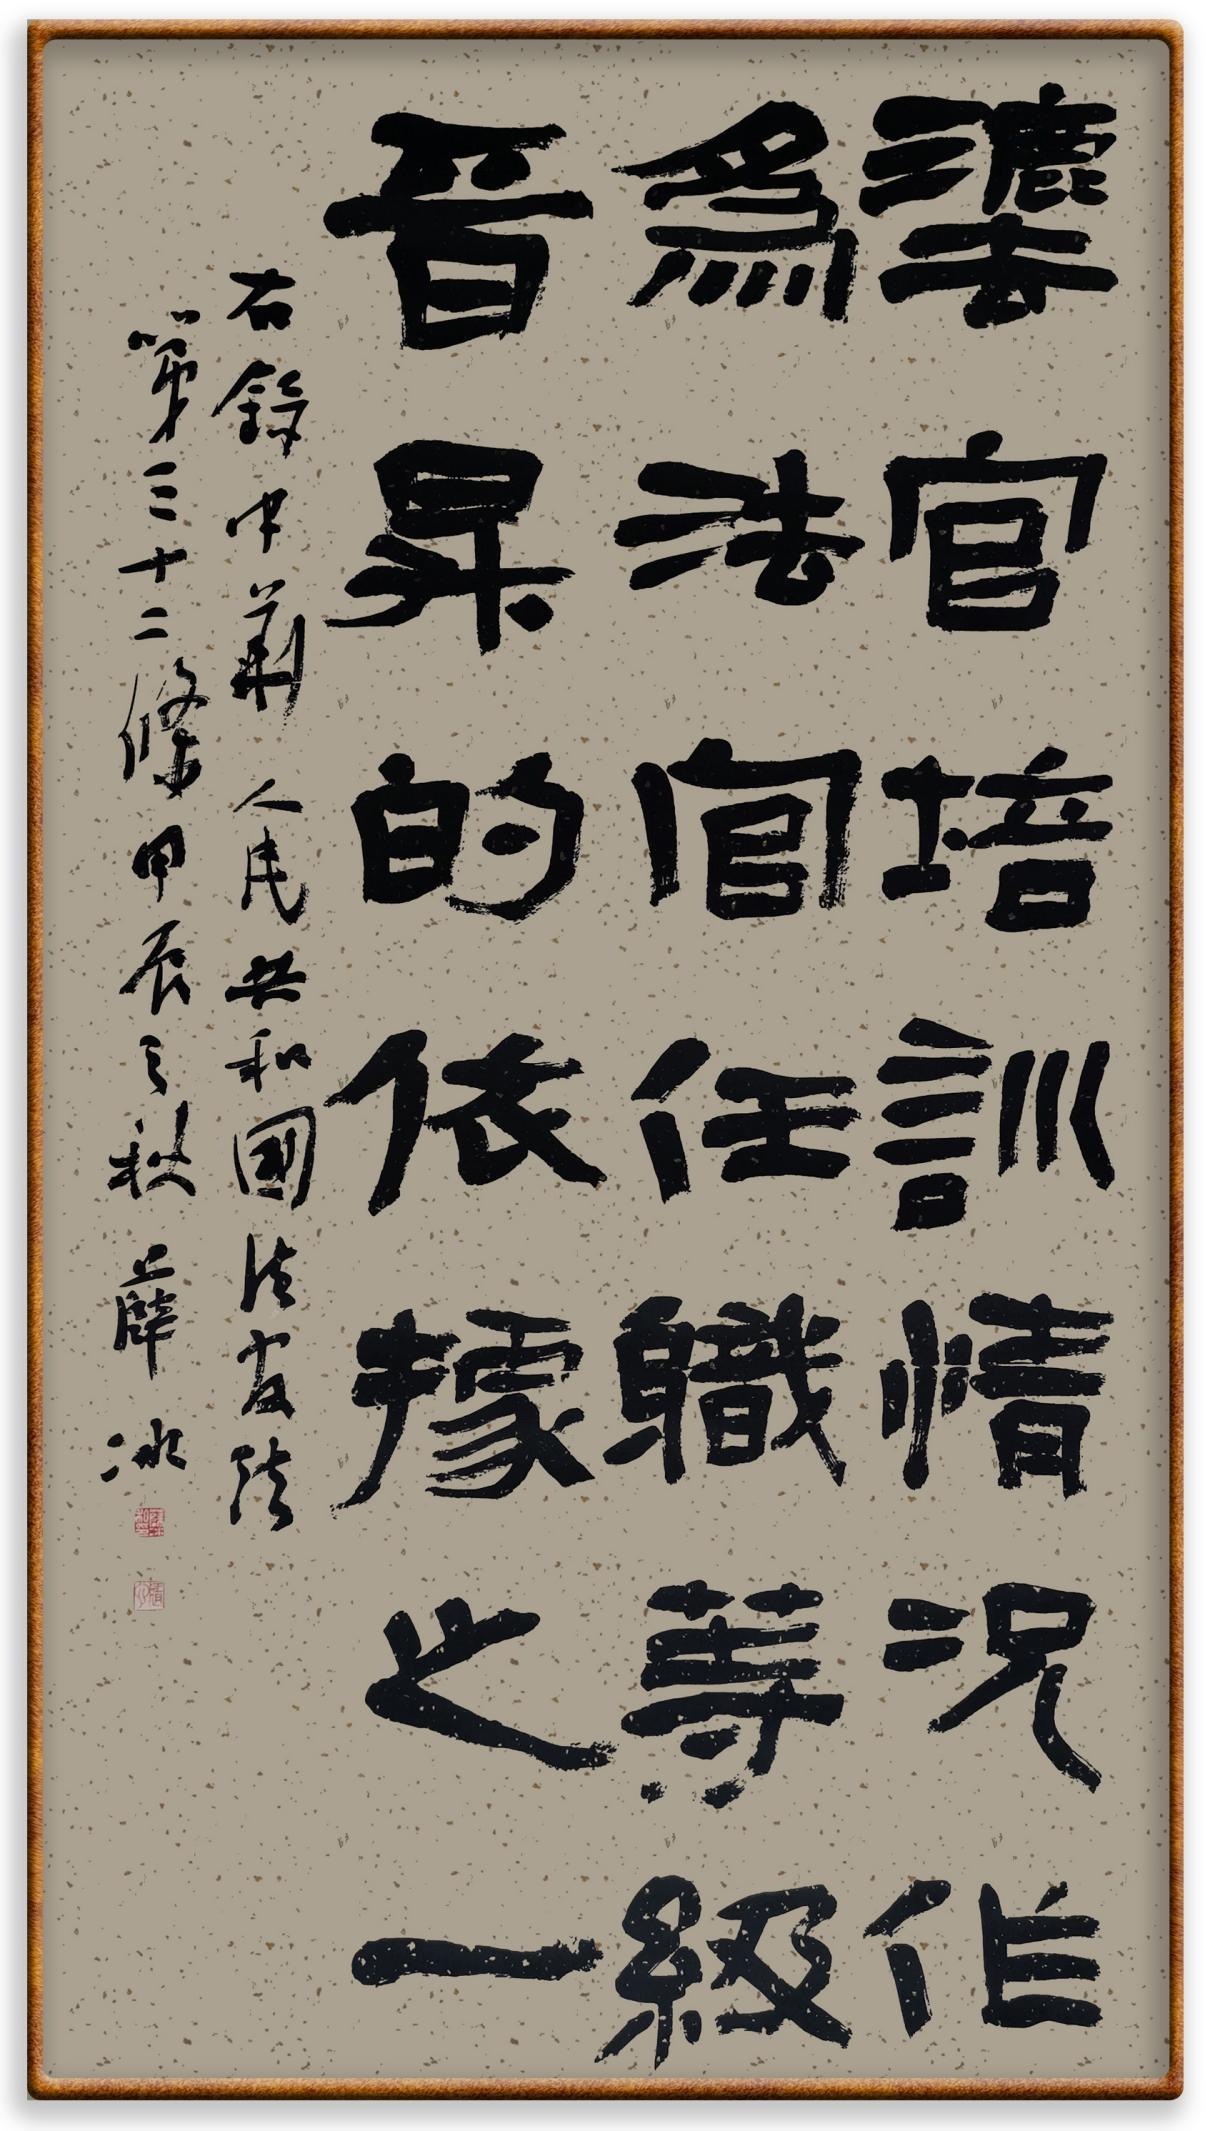 灋官培訓情況作
爲法官任職等級
晉昇的依據之一
右録中華人民共和國法官法
第三十二條甲辰之秋薛冰